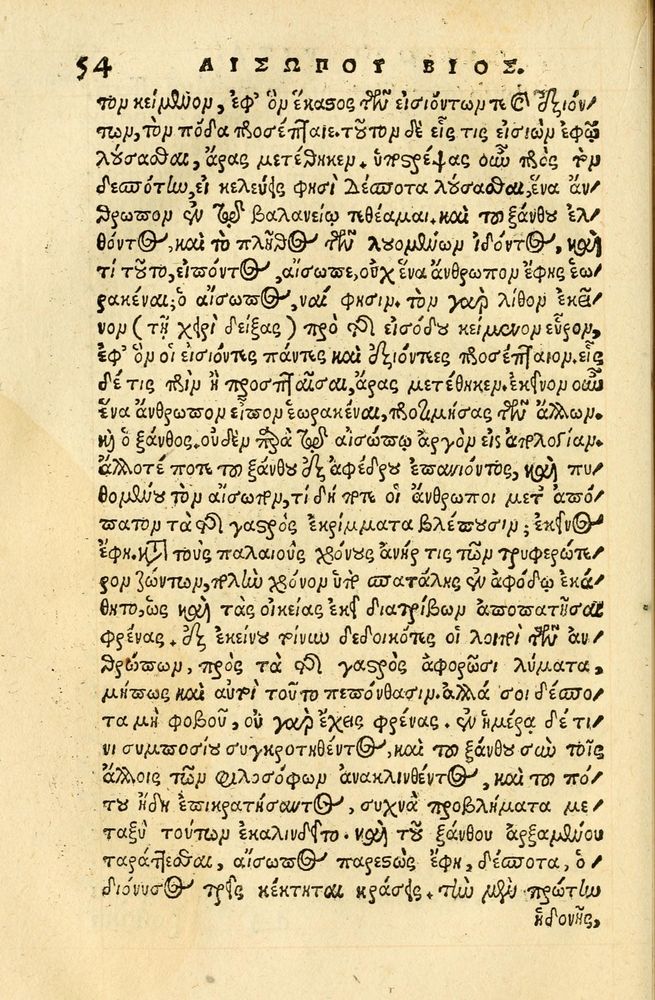 54 ΑΙΣΩΠΟΥ ΒΙΟΣ.
τον κείμενον, ἐφ' ὃν ἕκαστος τῶν εἰσιόντων τε καὶ ἐξιόν/
των, τὸν πόδα προσέπταιε. τοῦτον δὲ εἷς τις εἰσιὼν ἐφ' ᾧ
λούσασθαι, ἄρας μετέθηκεν. ὑποστρέψας οὖν πρὸς τὸν
δεσπότην, εἰ κελεύεις φησὶ δέσποτα λούσασθαι, ἕνα ἄν/
θρωπον ἐν τῷ βαλανείῳ τεθέαμαι. καὶ τοῦ ξάνθου ἐλ/
θόντος, καὶ τὸ πλῆθος τῶν λουομένων ἰδόντος, καὶ
τί τοῦτο, εἰπόντος, αἴσωπε, οὐχ ἕνα ἄνθρωπον ἔφης ἑω/
ρακέναι; ὁ αἴσωπος, ναί φησιν. τὸν γὰρ λίθον ἐκεῖ/
νον (τῇ χειρὶ δείξας) πρὸ τῆς εἰσόδου κείμενον εὗρον,
ἐφ' ὃν οἱ εἰσιόντες πάντες καὶ ἐξιόντες προσέπταιον. εἷς
δέ τις πρὶν ἢ προσπταῖσαι, ἄρας μετέθηκεν. ἐκεῖνον οὖν
ἕνα ἄνθρωπον εἶπον ἑωρακέναι, προτιμήσας τῶν ἄλλων.
καὶ ὁ ξάνθος. οὐδὲν παρὰ τῷ αἰσώπῳ ἀργὸν εἰς ἀπολογίαν.
ἄλλοτέ ποτε τοῦ ξάνθου ἐξ ἀφέδρου ἐπανιόντος, καὶ πυ/
θομένου τὸν αἴσωπον, τί δήποτε οἱ ἄνθρωποι μετ' ἀπό/
πατον τὰ τῆς γαστρὸς ἐκκρίμματα βλέπουσιν; ἐκεῖνος
ἔφη. κατὰ τοὺς παλαιοὺς χρόνους ἀνήρ τις τῶν τρυφερώτε/
ρον ζώντων, πολὺν χρόνον ὑπὸ σπατάλης ἐν ἀφόδῳ ἐκά/
θητο, ὡς καὶ τὰς οἰκείας ἐκεῖ διατρίβων ἀποπατῆσαι
φρένας. ἐξ ἐκείνου τοίνυν δεδοικότες οἱ λοιποὶ τῶν ἀν/
θρώπων, πρὸς τὰ τῆς γαστρὸς ἀφορῶσι λύματα,
μήπως καὶ αὐτοὶ τοῦτο πεπόνθασιν. ἀλλά σοι δέσπο/
τα μὴ φοβοῦ, οὐ γὰρ ἔχεις φρένας. ἐν ἡμέρᾳ δέ τι/
νι συμποσίου συγκροτηθέντος, καὶ τοῦ ξάνθου σὺν τοῖς
ἄλλοις τῶν φιλοσόφων ἀνακλινθέντος, καὶ τοῦ πό/
του ἤδη ἐπικρατήσαντος, συχνὰ προβλήματα με/
ταξὺ τούτων ἐκαλινδεῖτο. καὶ τοῦ ξάνθου ἀρξαμένου
ταράττεσθαι, αἴσωπος παρεστὼς ἔφη, δέσποτα, ὁ
διόνυσος τρεῖς κέκτηται κράσεις. τὴν μὲν πρώτην
ἡδονῆς,